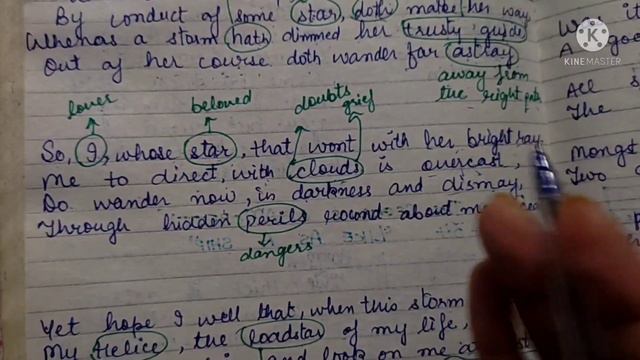 By conduct of some star, doth make her way
Whenas a storm hath dimmed her trusty guide
Out of her course doth wander far astray
away from
the right path
lover
beloved
doubts
grief
So, I, whose star, that wont with her bright ray
Me to direct, with clouds is overcast,
Do wander now, in darkness and dismay,
Through hidden perils round about me
dangers
Yet hope I well that, when this storm
My Helice, the loadstar of my life,
and look on me a
A
All
The
Mongst
Two
KINEMASTER